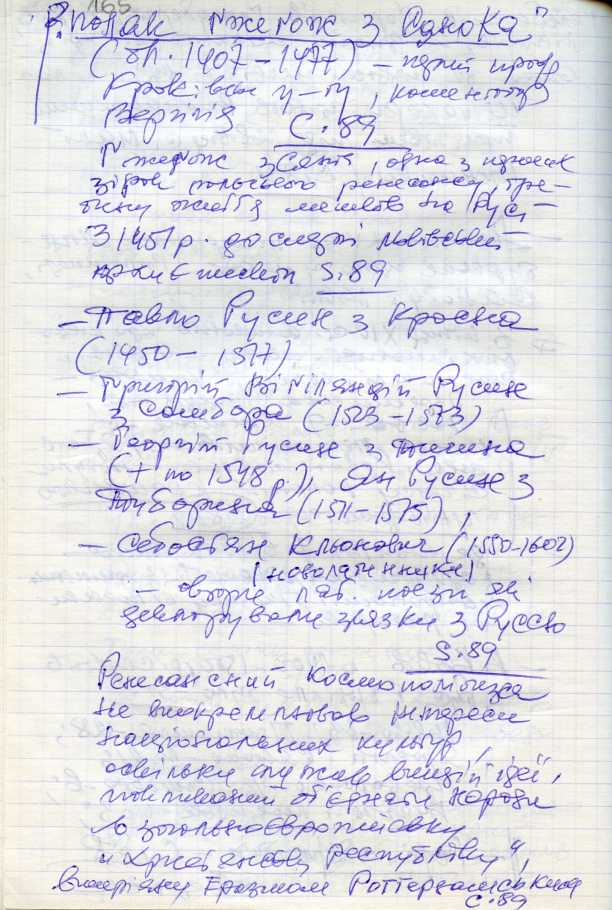 165
поляк Ґжеґож з Сянока"
(бл. 1407 – 1477) – проф
Краківськ у-ту, коментатор
Вергілія С. 89
Ґжеґож з Сянка, одна з
зірок польського ренесансу, тре-
тину життя мешкав на Русі –
З 1451 р. до смерті львівський
S. 89
– Павло Русин з Кросна
(1450 – 1517)
– Григорій Вігілянцій Русин
з Самбора (1523 – 1573)
– Георгій Русин з Тичина
(+ по 1548 р.), Ян Русин з
(1511 – 1575),
– Себастян Кльонович (1550-1602)
(новолатинники)
– автори лат. поезії які
декларували зв'язки з Руссю
S. 89
Ренесансний космополітизм
не виокремлював інтереси
національних культур,
оскільки служив вищій ідеї,
покликаній об'єднати народи
в загальноєвропейську
"християнську республіку",
виміряну Еразмом Роттердамським
С. 89